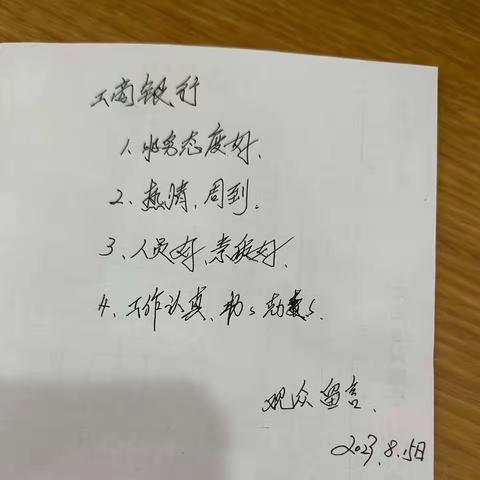 工商银行
1、服务态度好.
2、热情、周到。
3、人员好、素质好.
4、工作认真、
观众留言.
2023.8.15日